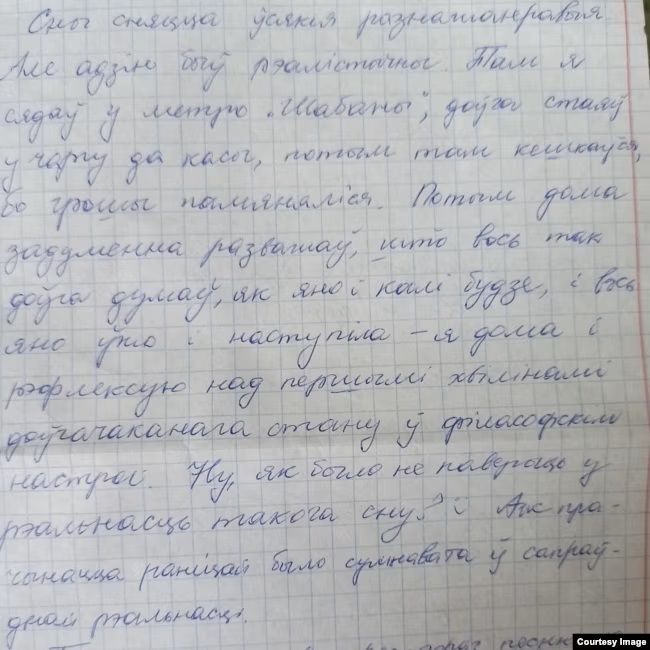 Сны сняцца ўсякія разнажанравыя.
Але адзін быў рэалістычны. Там я
сядаў у метро „Шабаны", доўга стаяў
у чарзе да касы, потым там кешкаўся,
бо грошы памяняліся. Потым дома
задуменна разважаў, што вось так
доўга думаў, як яно і калі будзе, і вось
яно ўжо і наступіла – я дома і
рэфлексую над першымі хвілінамі
доўгачаканага стану ў філасофскім
настроі. Ну, як было не паверыць у
рэальнасць такога сну? Але пра-
чынацца раніцай было сумнавата ў сапраў-
днай рэальнасці.